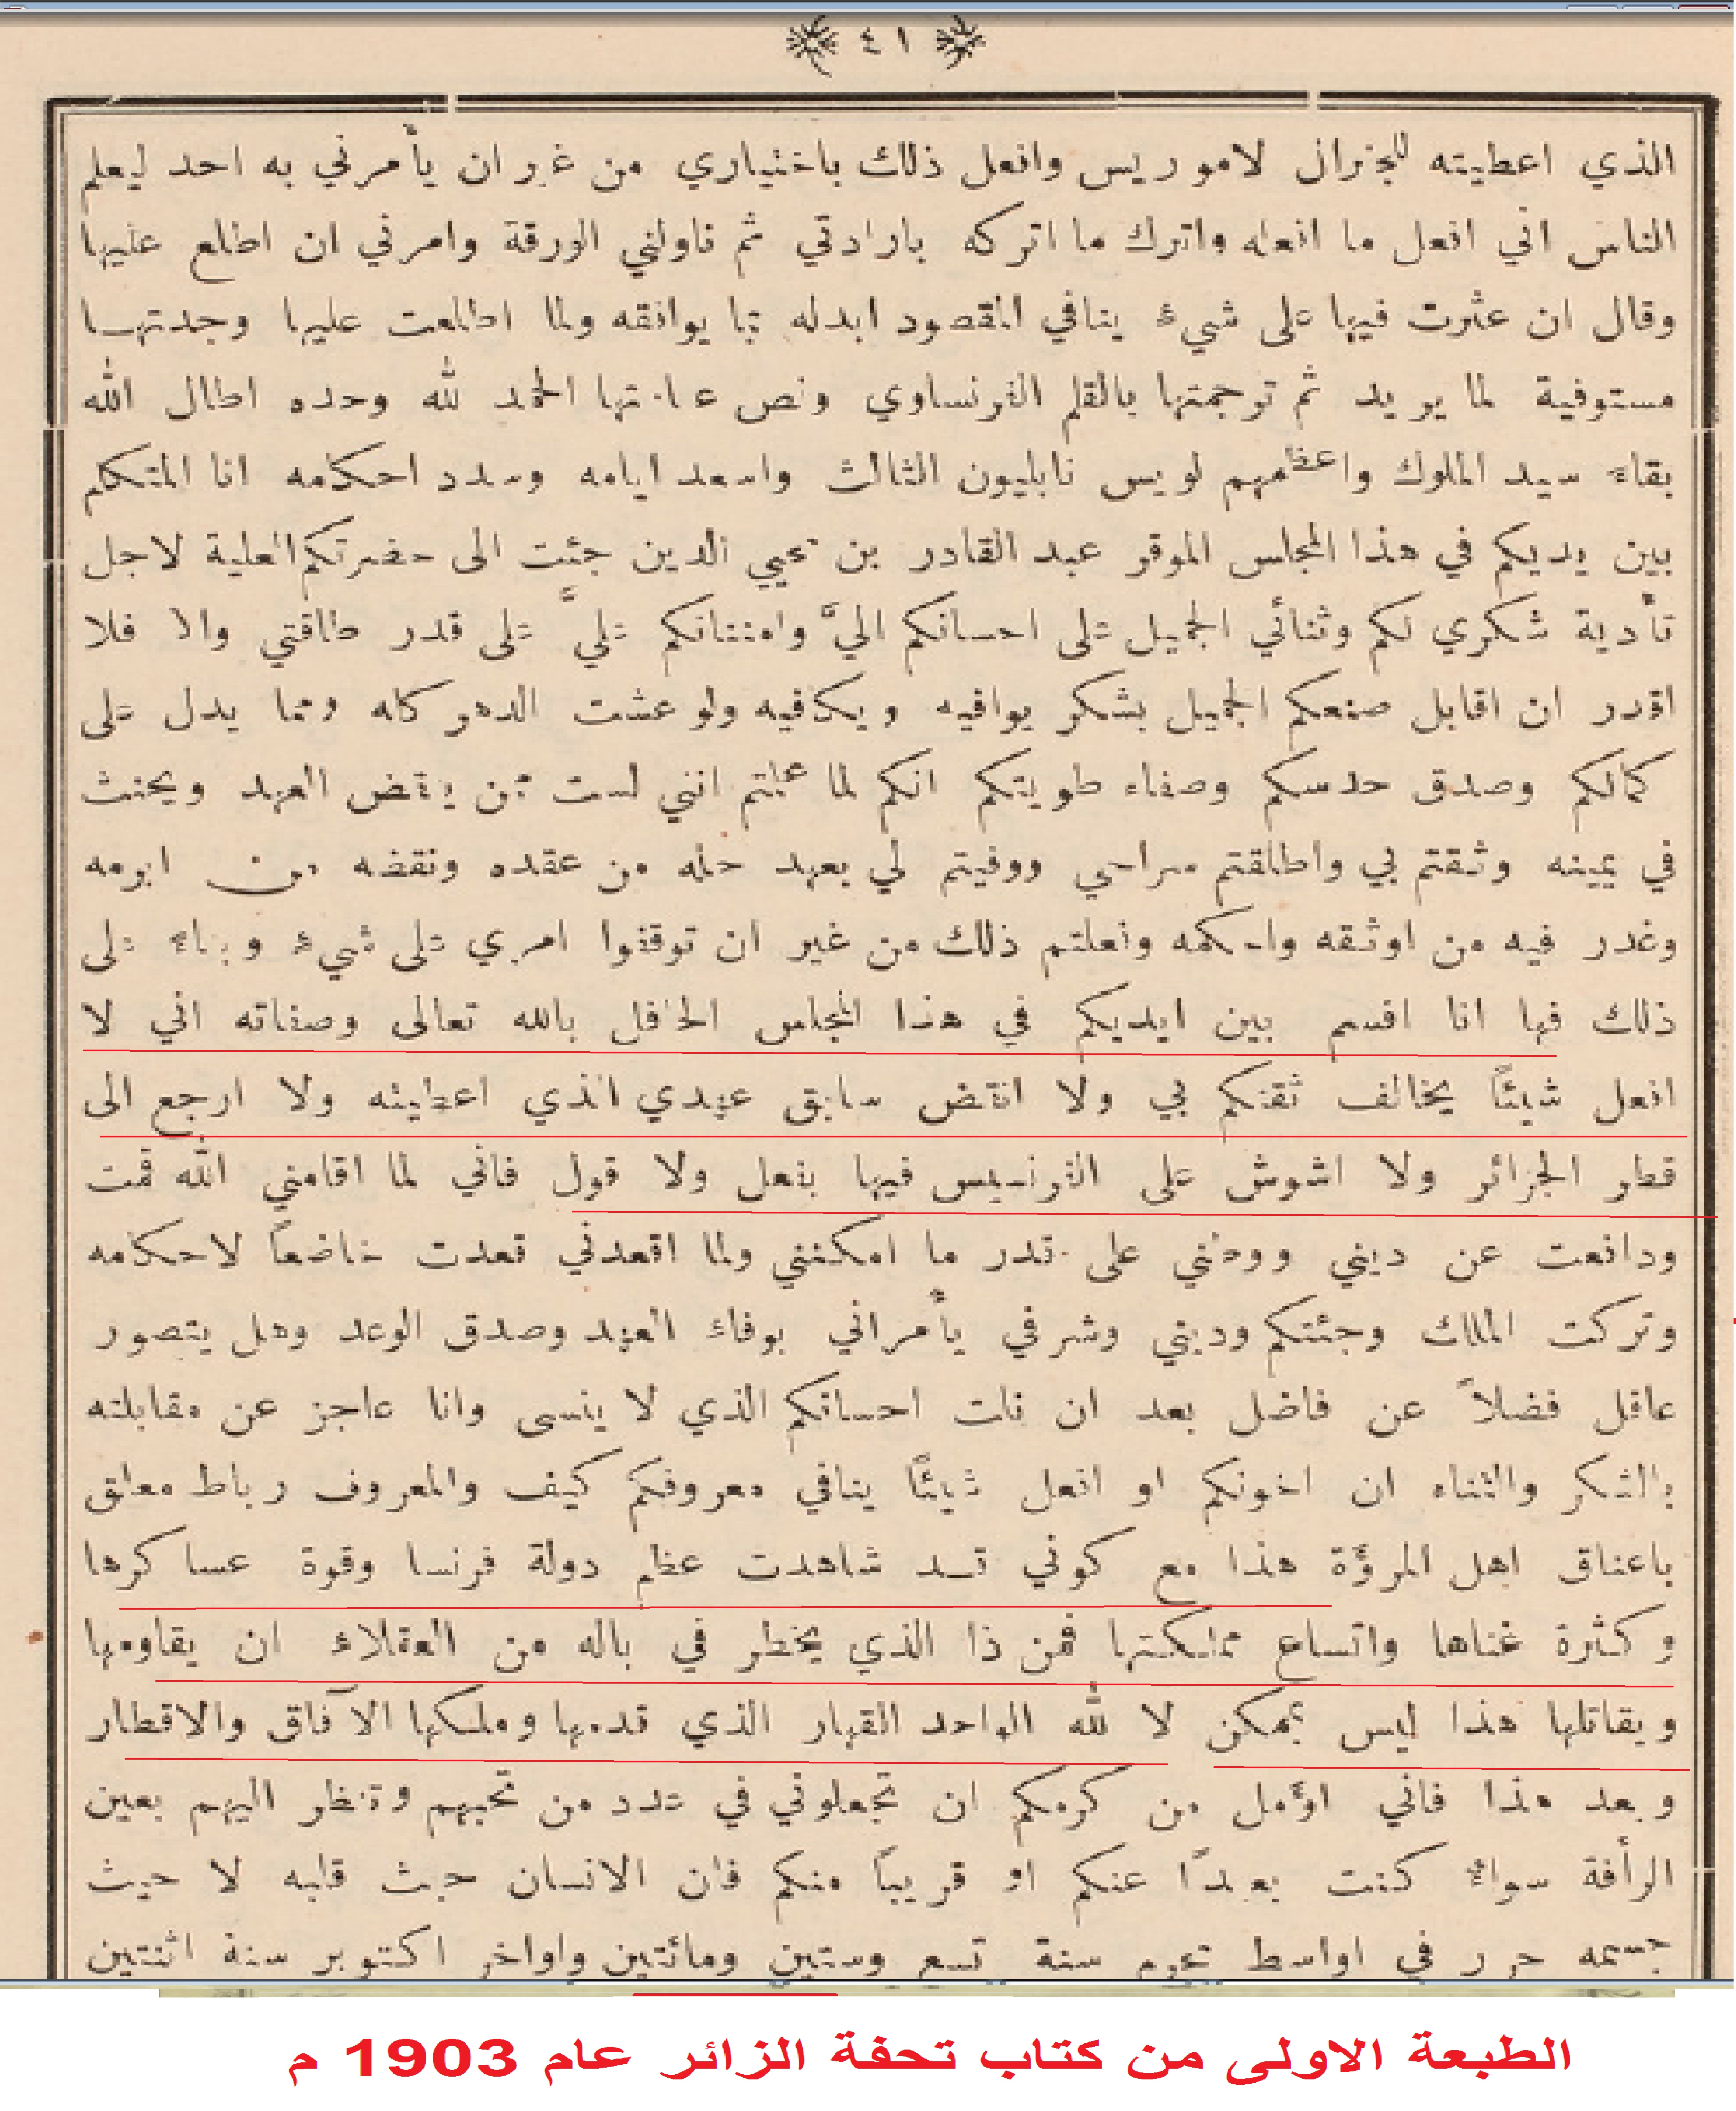 ٤١
الذي اعطيته للجنرال لاموريس وافعل ذلك باختياري من غير ان يأمرني به احد ليعلم
الناس اني افعل ما افعله واترك ما اتركه بارادتي ثم ناولني الورقة وامرني ان اطلع عليها
وقال ان عثرت فيها على شيء ينافي المقصود ابدله بما يوافقه ولما اطلعت عليها وجدتهــا
مستوفية لما يريد ثم ترجمتها بالقلم الفرنساوي ونص عبارتها الحمد لله وحده اطال الله
بقاء سيد الملوك واعظمهم لويس نابليون الثالث واسعد ايامه وسدد احكامه انا المتكلم
بين يديكم في هذا المجلس الموقر عبد القادر بن محيي الدين جئت الى حضرتكم العلية لاجل
تأدية شكري لكم وثنائي الجميل على احسانكم اليَّ وامتنانكم عليَّ على قدر طاقتي والا فلا
اقدر ان اقابل صنعكم الجميل بشكر يوافيه ويكافيه ولو عشت الدهر كله ومما يدل على
كمالكم وصدق حدسكم وصفاء طويتكم انكم لما علمتم انني لست ممن ينقض العهد ويحنث
في يمينه وثقتم بي واطلقتم سراحي ووفيتم لي بعهد حله من عقده ونقضه من ابرمه
وغدر فيه من اوثقه واحكمه وفعلتم ذلك من غير ان توقفوا امري على شيء وبناء على
ذلك فها انا اقسم بين ايديكم في هذا المجلس الحافل بالله تعالى وصفاته اني لا
افعل شيئاً يخالف ثقتكم بي ولا انقض سابق عهدي الذي اعطيته ولا ارجع الى
قطر الجزائر ولا اشوش على الفرنسيس فيها بفعل ولا قول فاني لما اقامني الله قمت
ودافعت عن ديني ووطني على قدر ما امكنني ولما اقعدني قعدت خاضعاً لاحكامه
وتركت الملك وجئتكم وديني وشرفي يأمراني بوفاء العهد وصدق الوعد وهل يتصور
عاقل فضلاً عن فاضل بعد ان نلت احسانكم الذي لا ينسى وانا عاجز عن مقابلته
بالشكر والثناء ان اخونكم او افعل شيئًا ينافي معروفكم كيف والمعروف رباط معلق
باعناق اهل المروّة هذا مع كوني قــد شاهدت عظم دولة فرنسا وقوة عساكرها
وكثرة غناها واتساع مملكتها فمن ذا الذي يخطر في باله من العقلاء ان يقاومها
ويقاتلها هذا ليس بممكن لا لله الواحد القهار الذي قدمها وملكها الآفاق والاقطار
وبعد هذا فاني اؤمل من كرمكم ان تجعلوني في عدد من تحبهم وتنظر اليهم بعين
الرأفة سواء كنت بعيدًا عنكم او قريباً منكم فان الانسان حيث قلبه لا حيث
جسمه حرر في اواسط محرم سنة تسع وستين ومائتين واواخر اكتوبر سنة اثنتين
الطبعة الاولى من كتاب تحفة الزائر عام 1903 م